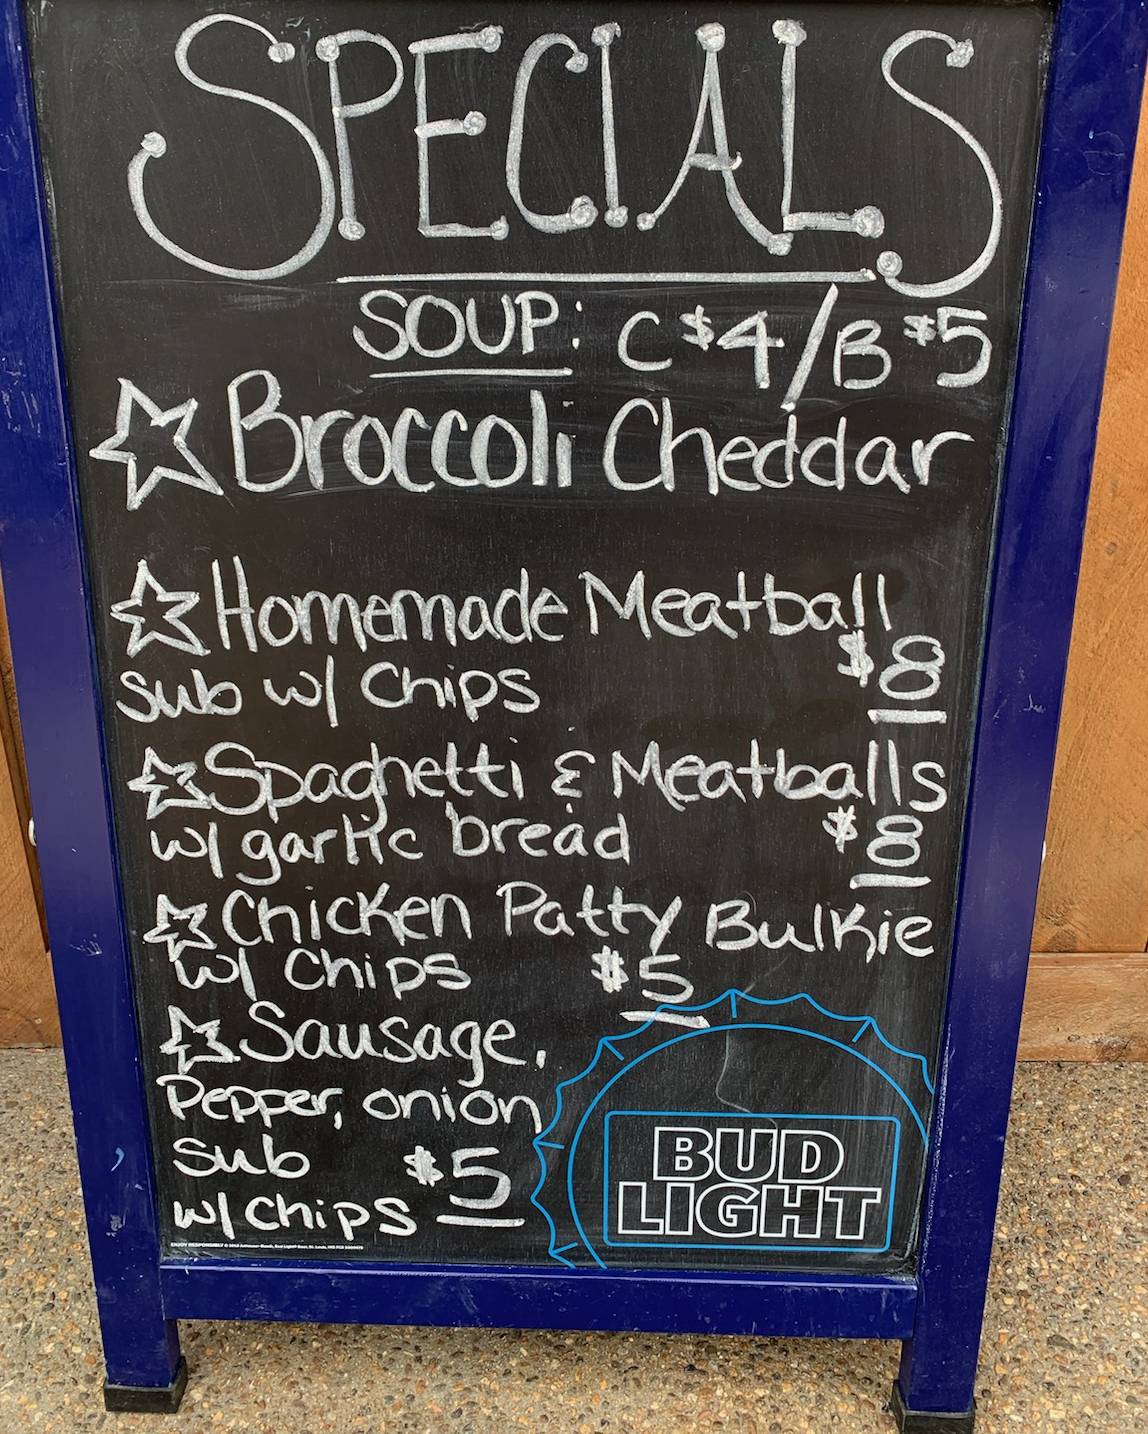 SPECIALS
SOUP: C $4/B $5
Broccoli Cheddar
Homemade Meatball
sub w/ Chips $8
Spaghetti & Meatballs
w/ garlic bread $8
Chicken Patty Bulkie
w/ Chips $5
Sausage,
Pepper, onion
sub $5
w/ chips
BUD
LIGHT